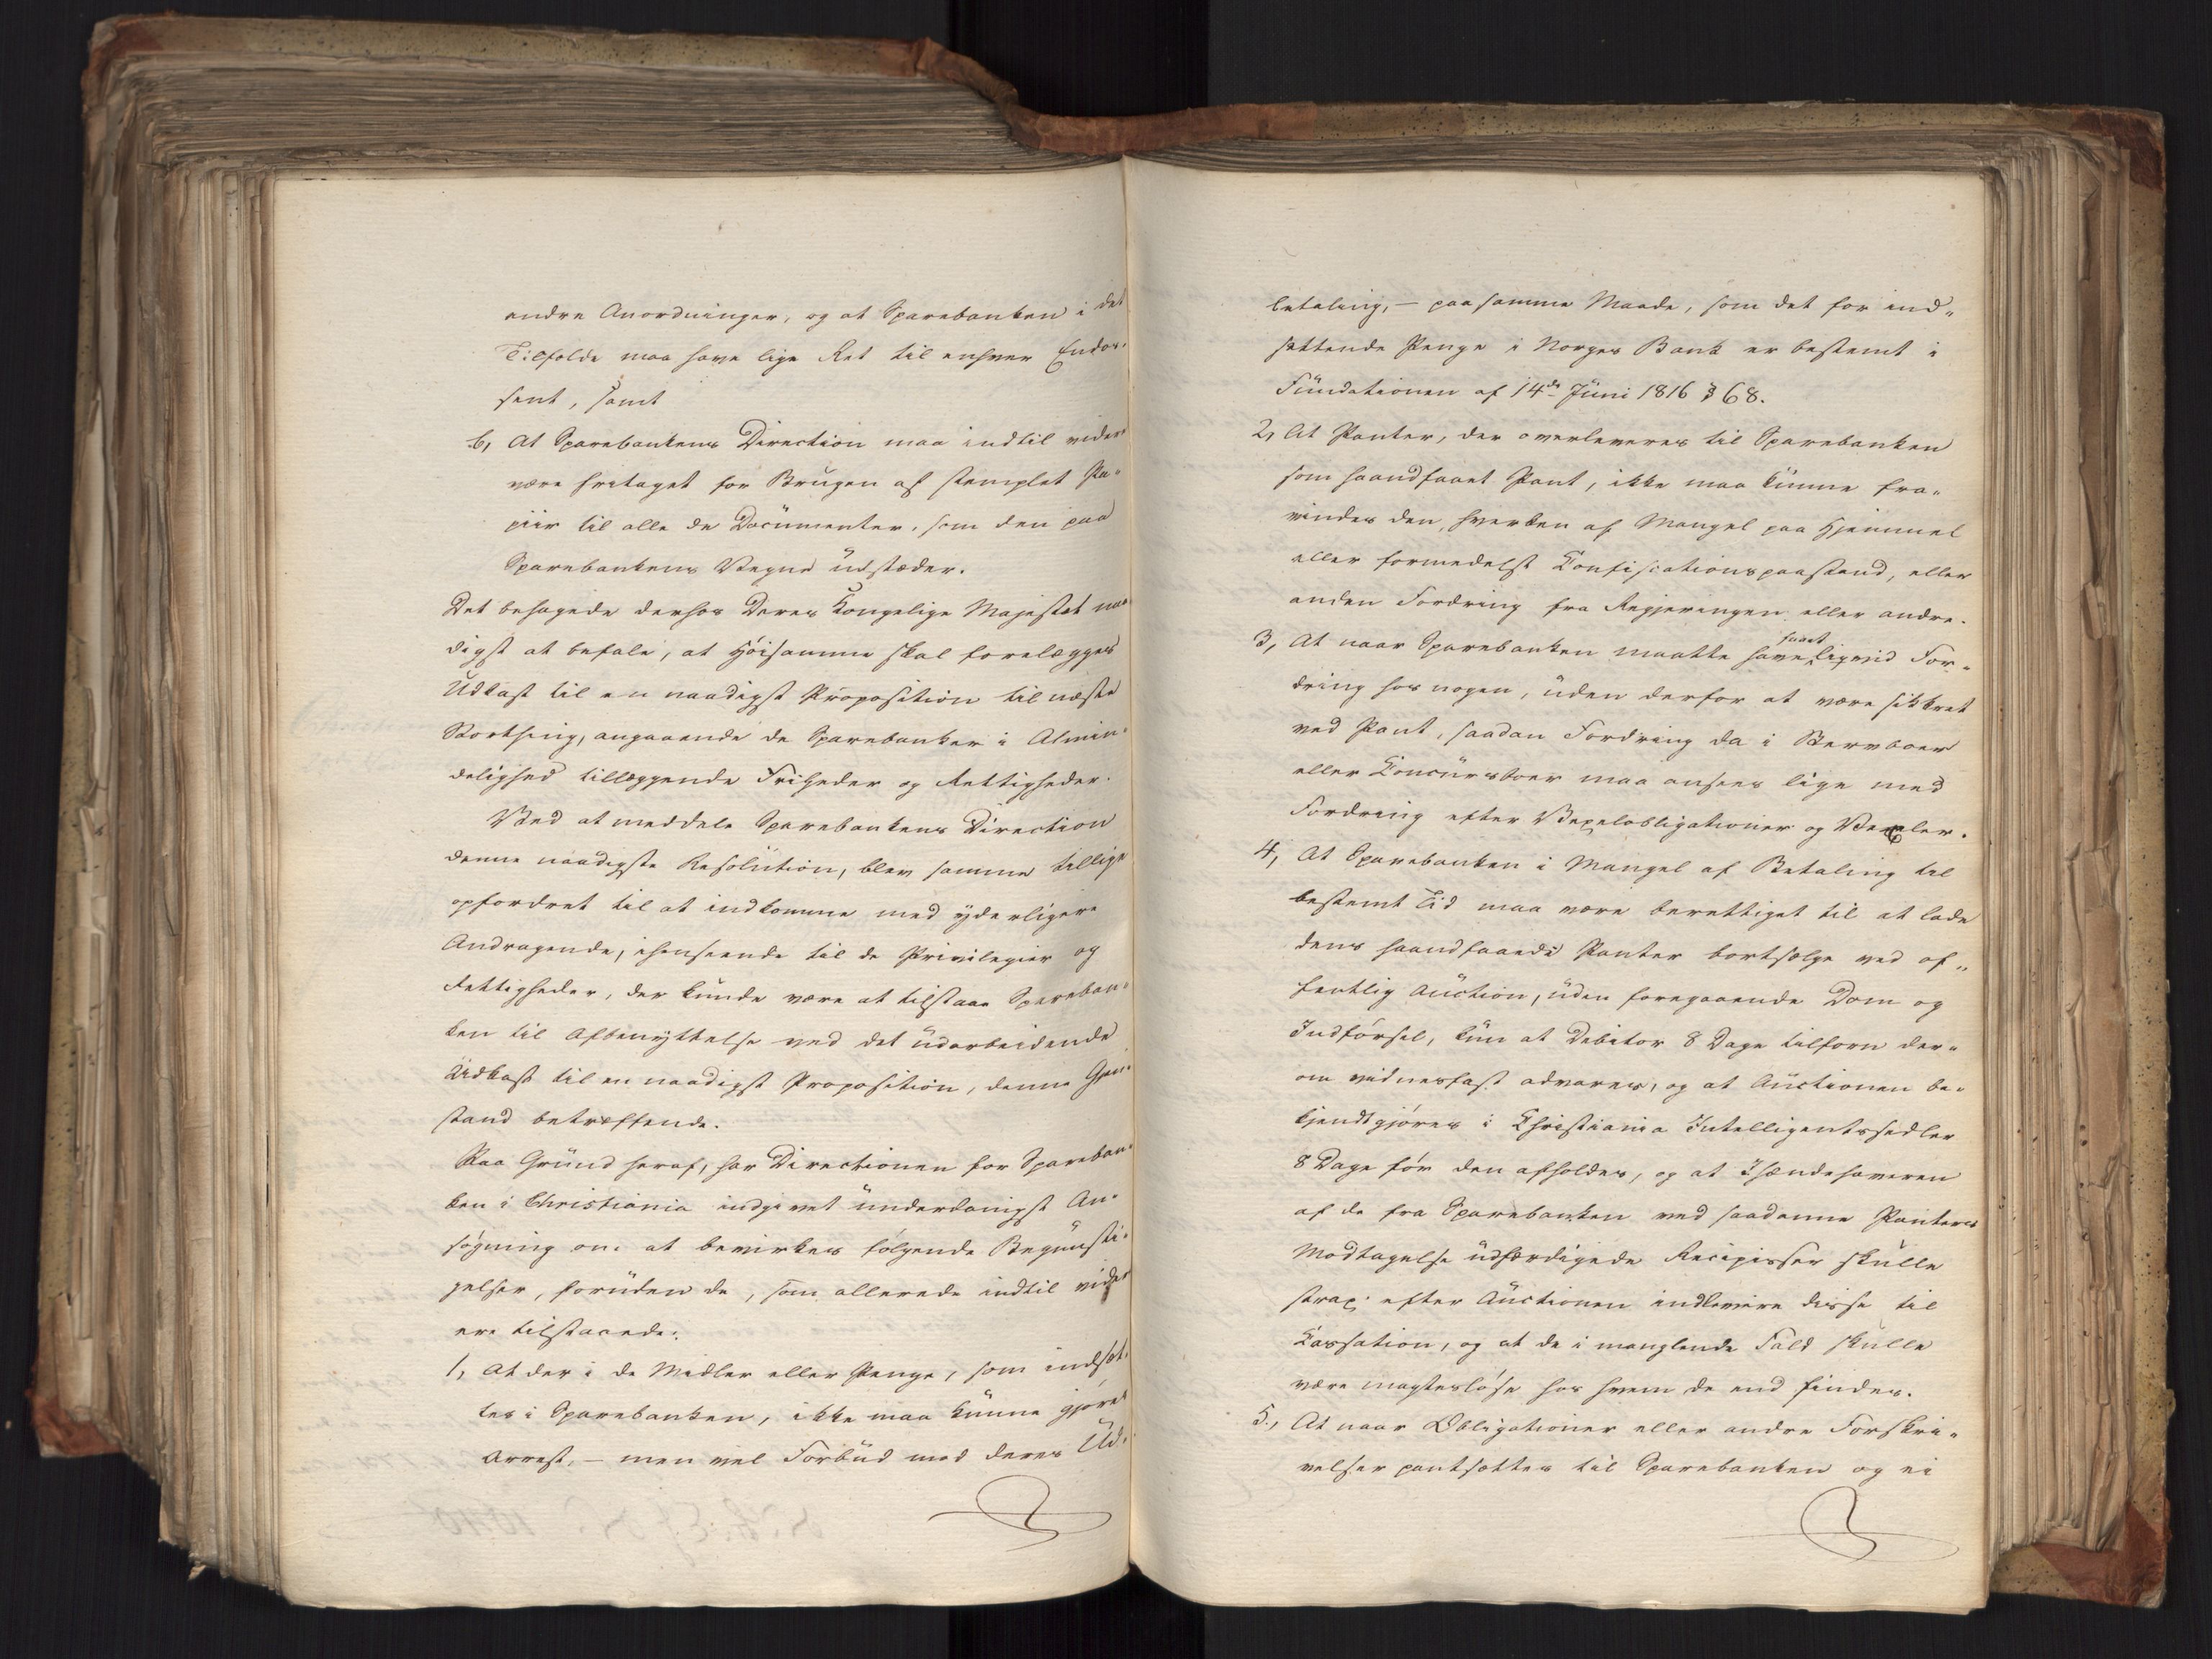 andre Anordninger, og at Sparebanken i det
Tilfælde maa have lige Ret til enhver Endos-
sent, samt
b, At Sparebankens Direction maa indtil videre
være fritaget for Brugen af stemplet Pa-
piir til alle de Documenter, som den paa
Sparebankens Vegne udstæder.
Det behagede derhos Deres Kongelige Majestet naa-
digst at befale, at Høisamme skal forelægges
Udkast til en naadigst Proposition til næste
Storthing, angaaende de Sparebanker i Almin-
delighed tillæggende Friheder og Rettigheder.
Ved at meddele Sparebankens Direction
denne naadigste Resolution, blev samme tillige
opfordret til at indkomme med yderligere
Andragende, ihenseende til de Privilegier og
Rettigheder, der kunde være at tilstaae Spareban-
ken til Afbenyttelse ved det udarbeidende
Udkast til en naadigst Proposition, denne Gjen-
stand betræffende.
Paa Grund heraf, har Directionen for Spareban-
ken i Christiania indgivet underdanigst An-
søgning om at bevirkes følgende Begunsti-
gelser, foruden de, som allerede indtil videre
ere tilstaaede:
1, At der i de Midler eller Penge, som indsæt-
tes i Sparebanken, ikke maa kunne gjøres
Arrest, — men vel Forbud mod deres Ud-
betaling, — paa samme Maade, som det for ind-
sættende Penge i Norges Bank er bestemt i
Fundationen af 14de Juni 1816 § 68.
2, At Panter, der overleveres til Sparebanken
som haandfaaet Pant, ikke maa kunne fra-
vindes den, hverken af Mangel paa Hjemmel
eller formedelst Confiscationspaastand, eller
anden Fordring fra Regjeringen eller andre.
3, At naar Sparebanken maatte have faaet liqvid For-
dring hos nogen, uden derfor at være sikkret
ved Pant, saadan Fordring da i Stervboer
eller Concursboer maa ansees lige med
Fordring efter Vexelobligationer og Vexler.
4, At Sparebanken i Mangel af Betaling til
bestemt Tid maa være berettiget til at lade
dens haandfaaede Panter bortsælge ved of-
fentlig Auction, uden foregaaende Dom og
Indførsel, kun at Debitor 8 Dage tilforn der-
om vidnesfast advares, og at Auctionen be-
kjendtgjøres i Christiania Intelligentssedler
8 Dage før den afholdes, og at Ihændehaveren
af de fra Sparebanken ved saadanne Panters
Modtagelse udfærdigede Recepisser skulle
strax efter Auctionen indlevere disse til
Cassation, og at de i manglende Fald skulle
være magtesløse hos hvem de end findes.
5., At naar Obligationer eller andre Forskri-
velser pantsættes til Sparebanken og ei